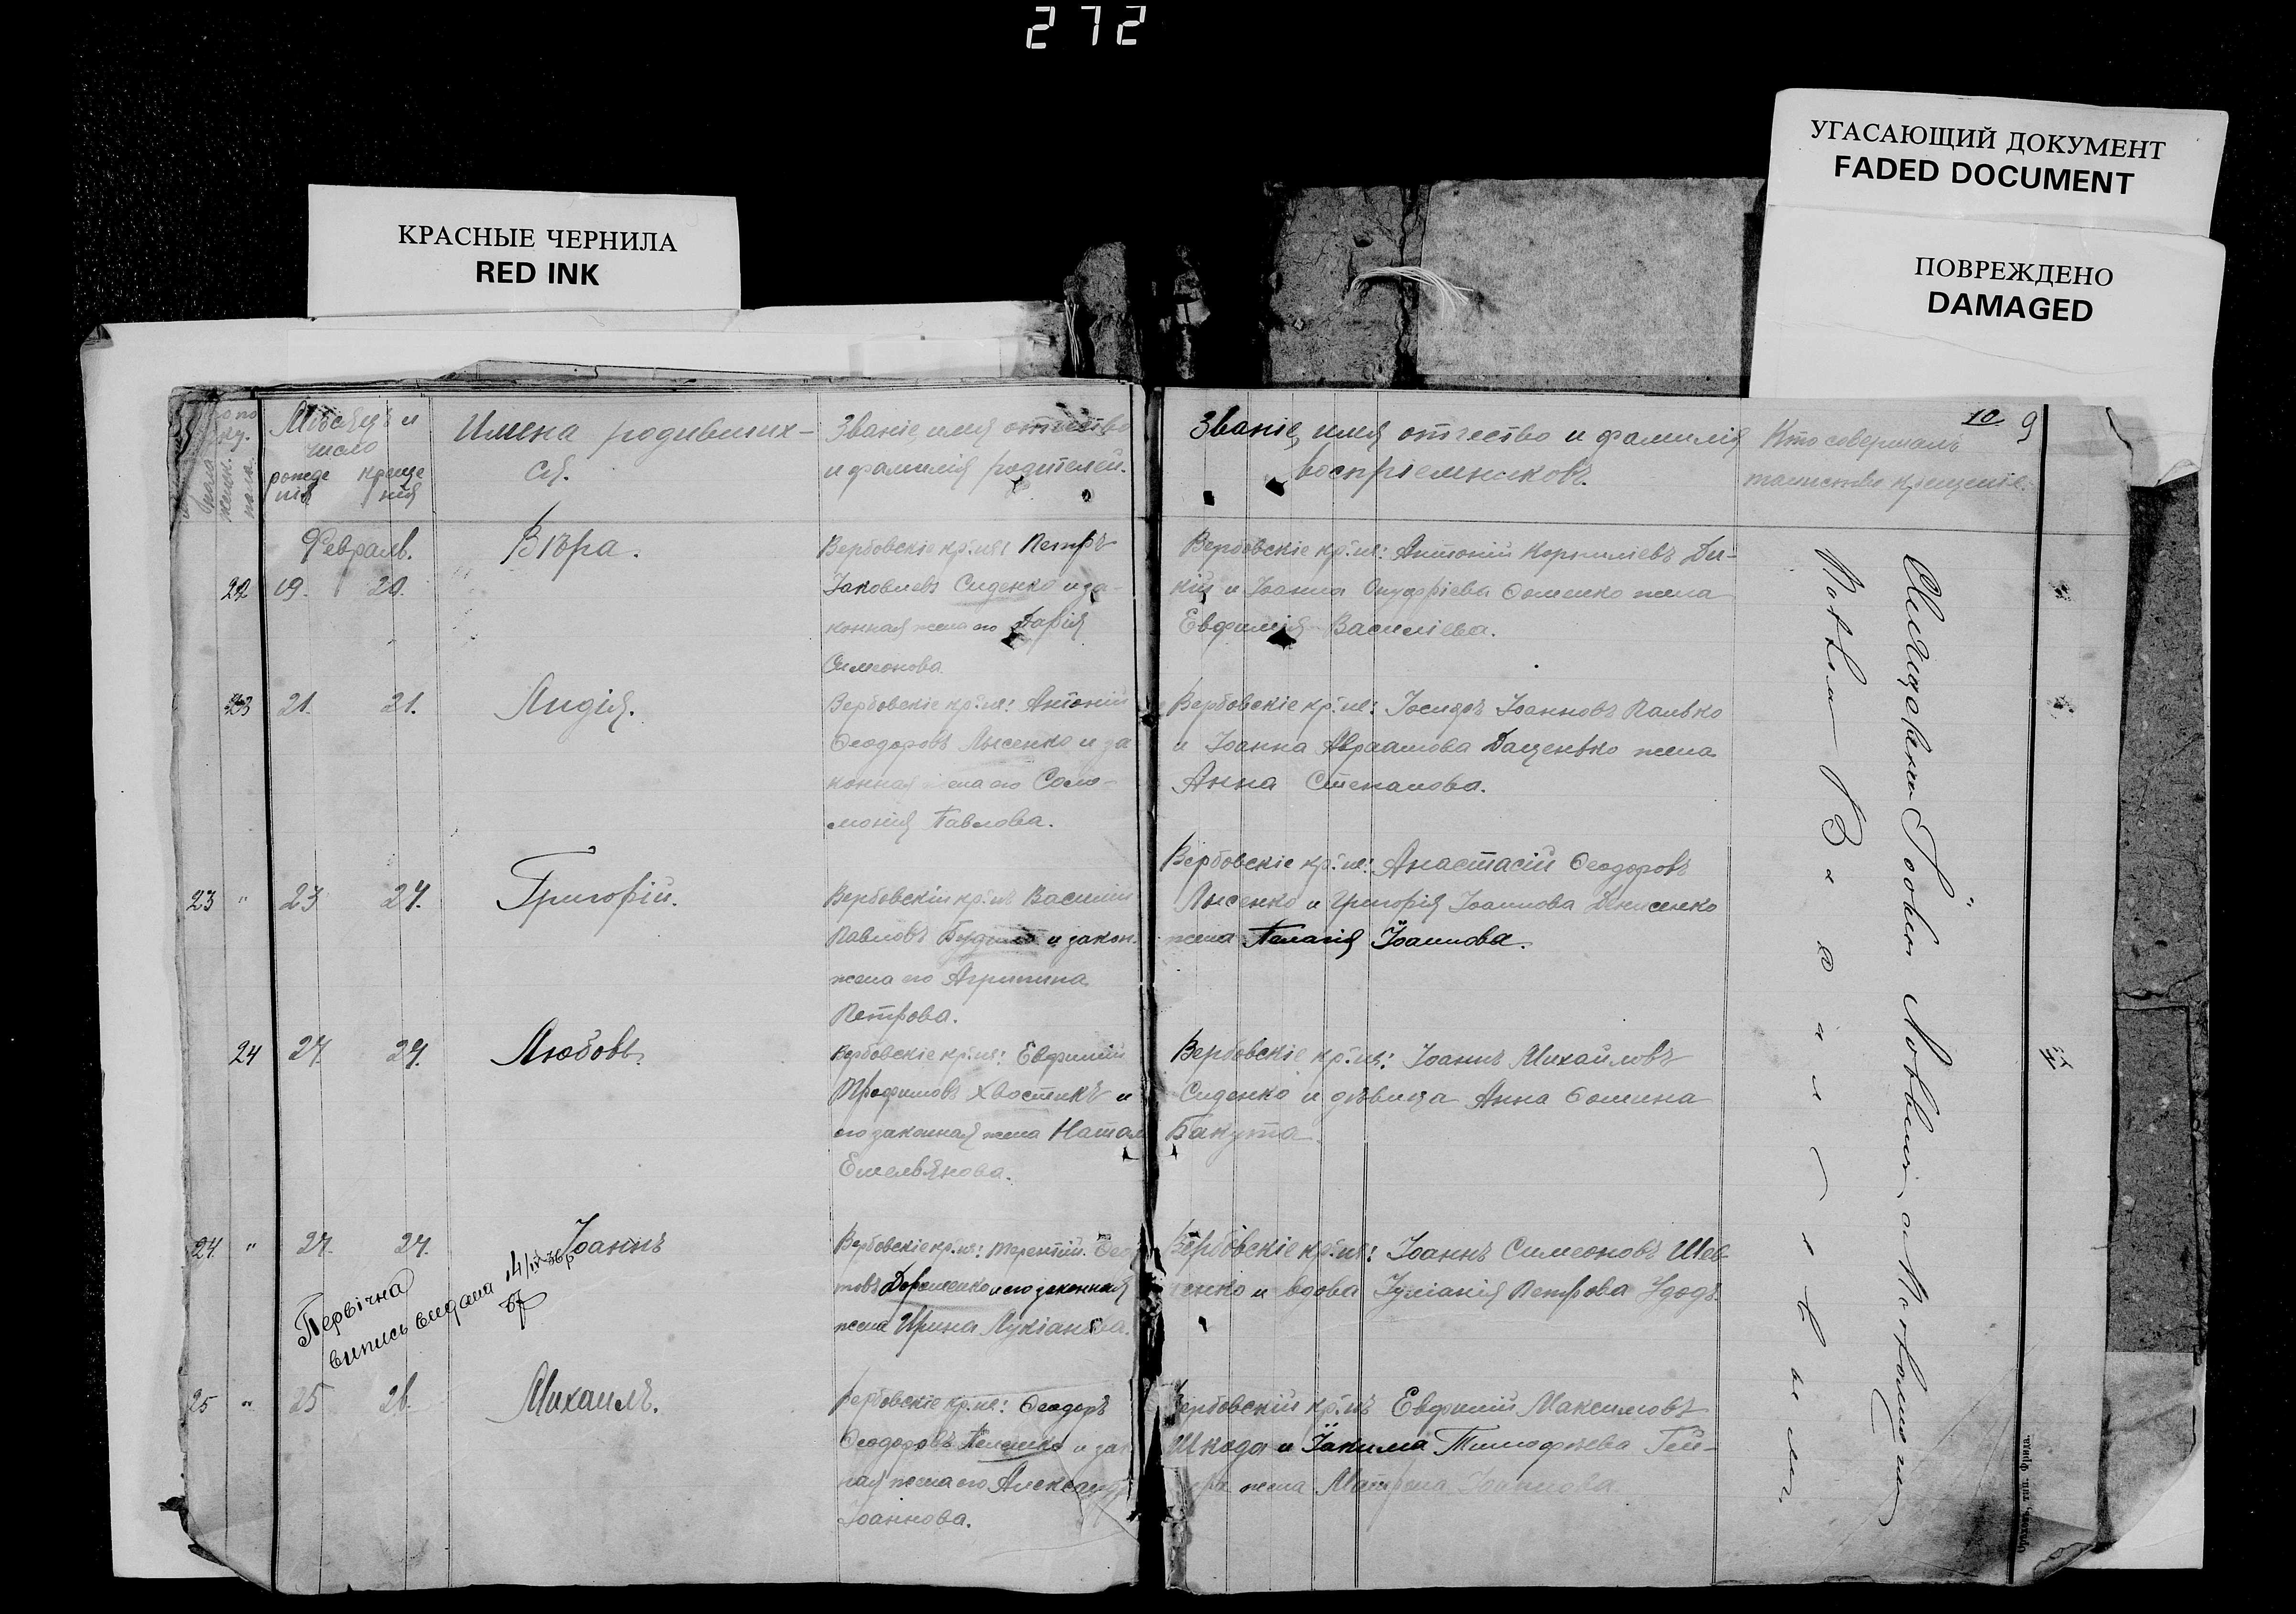 272
КРАСНЫЕ ЧЕРНИЛА
RED INK
УГАСАЮЩИЙ ДОКУМЕНТ
FADED DOCUMENT
ПОВРЕЖДЕНО
DAMAGED
Мѣсяцъ и
число
рожде
нія
креще
нія
женск.
пола.
Имена родивших-
ся.
Званіе, имя отчество
и фамилія родителей.
Званіе, имя отчество и фамилія
воспріемниковъ.
Кто совершалъ
таинство крещенія.
10 9
Февраль.
22 19. 20.
Вѣра.
Вербовскіе кр.не: Петръ
Іаковлевъ Сиденко и за-
конная жена его Дарія
Симеонова.
Вербовскіе кр.не: Антоній Корниліевъ Ди-
кій и Іоанна Онуфріева Ѳоменко жена
Евфимія Василіева.
23 21. 21.
Лидія.
Вербовскіе кр.не: Антоній
Ѳеодоровъ Лысенко и за
конная жена его Соло-
монія Павлова.
Вербовскіе кр.не: Іосифъ Іоанновъ Палько
и Іоанна Авраамова Даценько жена
Анна Степанова.
23 " 23 27.
Григорій.
Вербовскій кр.нъ Василій
Павловъ и закон.
жена его Агрипина
Петрова.
Вербовскіе кр.не: Анастасій Ѳеодоровъ
Лысенко и Григорія Іоаннова Денисенко
жена Пелагія Іоаннова.
24 27. 27.
Любовь.
Вербовскіе кр.не: Евфимій
Трофимовъ Хвостикъ и
его законная жена Натал
Емельянова.
Вербовскіе кр.не: Іоаннъ Михайловъ
Сиденко и дѣвица Анна Ѳомина
Бакута.
24 " 27. 27.
Іоаннъ
Вербовскіе кр.не: Терентій
товъ Дорошенко и его законная
жена Ирина Лукіанова.
Вербовскіе кр.не: Іоаннъ Симеоновъ Шев-
ченко и вдова Іуліанія Петрова Удодъ.
Первічна
випись видана 14/IX-36р
25 " 25 28.
Михаилъ.
Вербовскіе кр.не: Ѳеодоръ
Ѳеодоровъ и зак
ная жена его Александр
Іоаннова.
Вербовскій кр.нъ Евфимій Максимовъ
Шкода и Іакима Тимофѣева Гей-
жена Матрона Іоаннова.
Священникъ Іоаннъ
Орѣховъ, тип. Фрида.